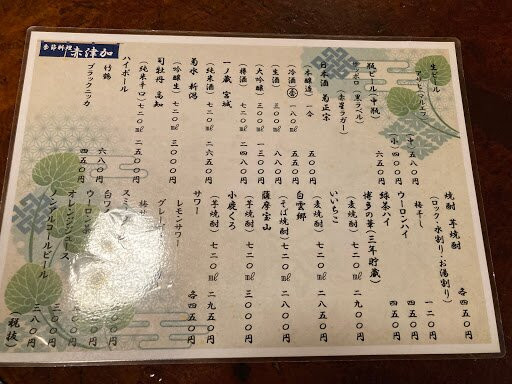 季節料理 赤津加
生ビール
アサヒマルエフ
(中) 五八〇円
(小) 四〇〇円
瓶ビール(中瓶)
サッポロ (黒ラベル)
(赤星ラガー) 六五〇円
日本酒 菊正宗
(本醸造) 一合 五五〇円
(冷酒) 一八〇㎖ 五〇〇円
(生酒) 三〇〇㎖
(大吟醸) 三〇〇㎖ 一三〇〇円
(樽酒) 七二〇㎖ 二四八〇円
一ノ蔵 宮城
(純米酒) 七二〇㎖ 二六五〇円
菊水 新潟
(吟醸生) 七二〇㎖ 三〇〇〇円
司牡丹 高知
(純米辛口) 七二〇㎖ 二七五〇円
ハイボール
竹鶴 五五〇円
ブラックニッカ 四五〇円
焼酎 芋焼酎
(ロック・水割り・お湯割り) 各四五〇円
梅干し 一二〇円
ウーロンハイ 四五〇円
緑茶ハイ 四五〇円
博多の華(三年貯蔵)
(麦焼酎) 七二〇㎖ 二九五〇円
いいちこ
(麦焼酎) 七二〇㎖ 二八〇〇円
白雲郷
(そば焼酎) 七二〇㎖ 二八〇〇円
薩摩宝山
(芋焼酎) 七二〇㎖
小鹿くろ
(芋焼酎) 七二〇㎖ 二九五〇円
サワー 各四五〇円
レモンサワー
ウーロン
オレンジジュース 三〇〇円
ノンアルコールビール 三八〇円
(税抜)